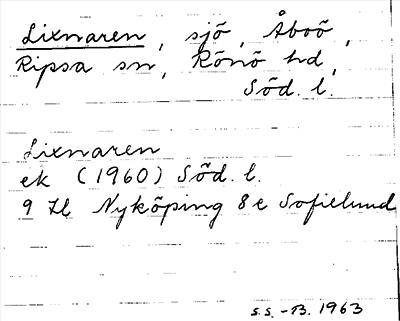 Lixnaren, sjö, Åboö,
Ripsa sn, Rönö hd,
Söd. l.
Lixnaren
ek (1960) Söd. l.
9 H Nyköping 8 e Sofielund
s.s. -B. 1963